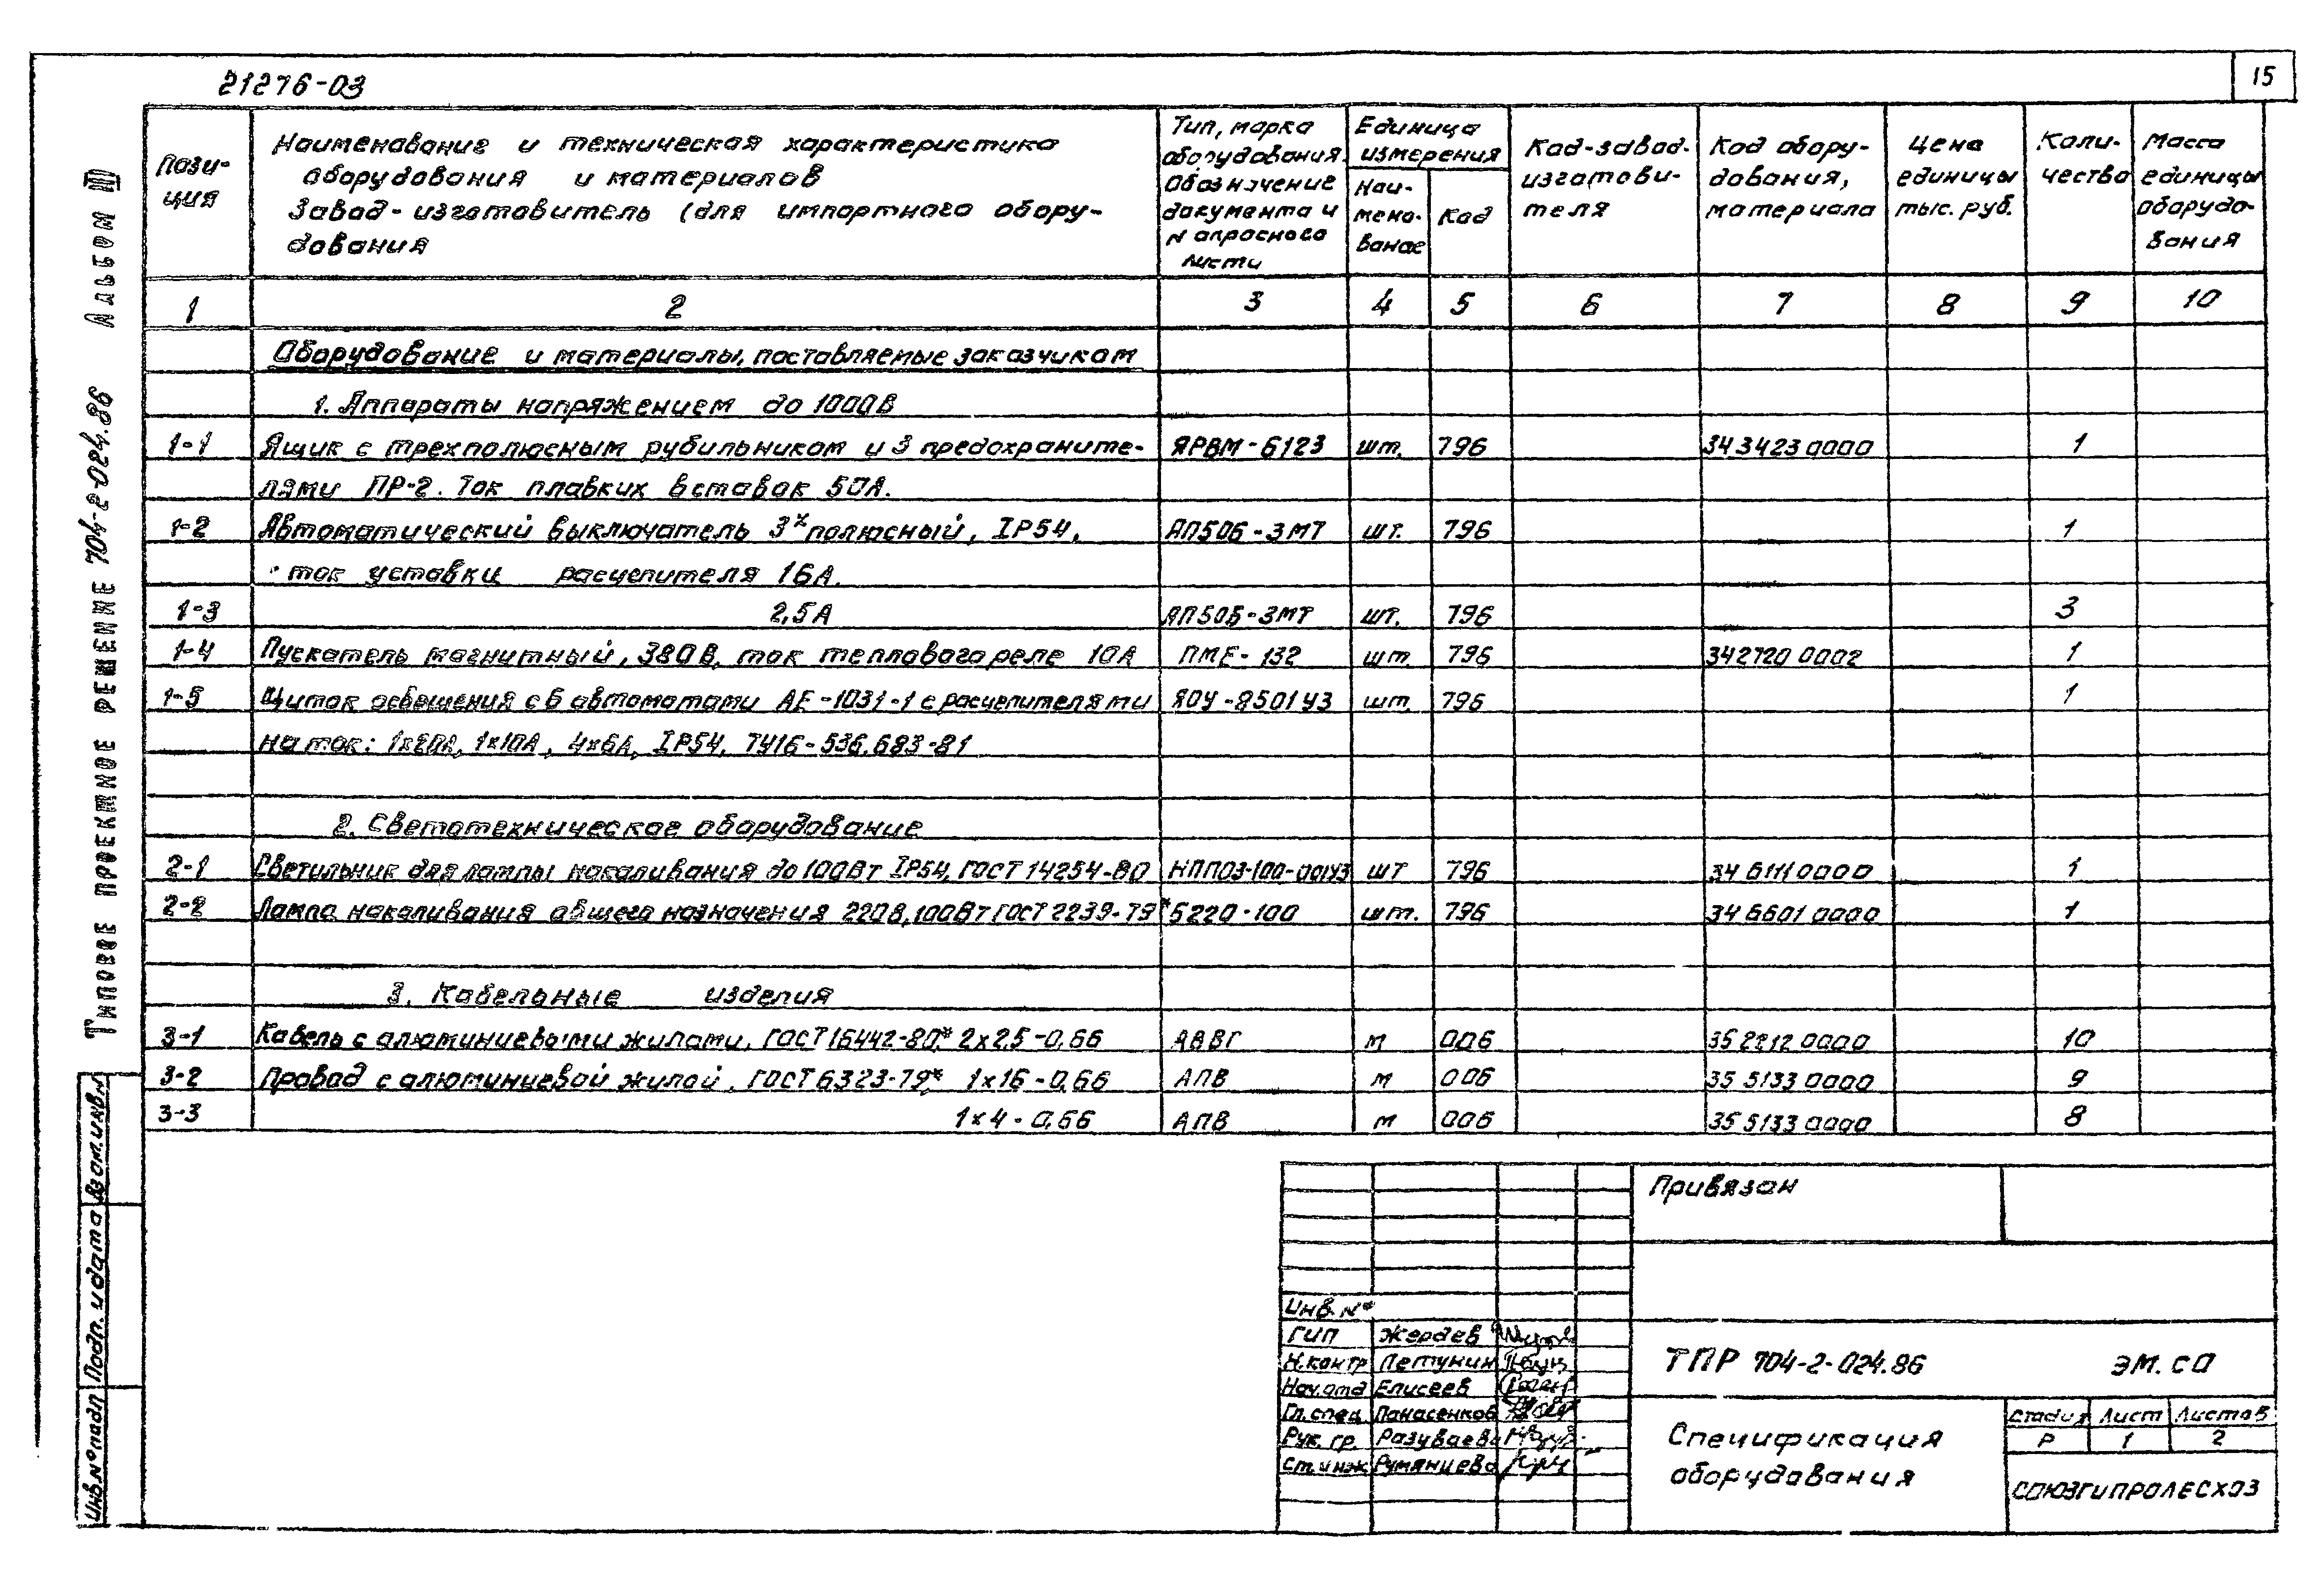 21276-03
15
Альбом III
Типовое проектное решение 704-2-024.86
Пози-
ция
Наименование и техническая характеристика
оборудования и материалов
Завод-изготовитель (для импортного обору-
дования
Тип, марка
оборудования.
Обозначение
документа и
N опросного
листа
Единица
измерения
Наи-
мено-
вание
Код
Код-завод-
изготови-
теля
Код обору-
дования,
материала
Цена
единицы
тыс. руб.
Коли-
чество
Масса
единицы
оборудо-
вания
1 2 3 4 5 6 7 8 9 10
Оборудование и материалы, поставляемые заказчиком
1. Аппараты напряжением до 1000В
1-1 Ящик с трехполюсным рубильником и 3 предохраните- ЯРВМ-6123 шт. 796 34 3423 0000 1
лями ПР-2. Ток плавких вставок 50А.
1-2 Автоматический выключатель 3х полюсный, IP54, АП50Б-3МТ шт. 796 1
ток уставки расцепителя 16А.
1-3 2,5А АП50Б-3МТ шт. 796 3
1-4 Пускатель магнитный, 380В, ток теплового реле 10А ПМЕ-132 шт 796 34 2720 0002 1
1-5 Щиток освещения с 6 автоматами АЕ-1031-1 с расцепителями ЯОУ-8501У3 шт. 796 1
на ток: 1х20А, 1х10А, 4х6А, IP54, ТУ16-536.683-81
2. Светотехническое оборудование
2-1 Светильник для лампы накаливания до 100Вт IP54, ГОСТ 14254-80 НПП03-100-001У3 шт 796 34 6111 0000 1
2-2 Лампа накаливания общего назначения 220В, 100Вт ГОСТ 2239-79* Б220-100 шт. 796 34 6601 0000 1
3. Кабельные изделия
3-1 Кабель с алюминиевыми жилами, ГОСТ 16442-80,* 2х2,5-0,66 АВВГ м 006 35 2212 0000 10
3-2 Провод с алюминиевой жилой, ГОСТ 6323-79,* 1х16-0,66 АПВ м 006 35 5133 0000 9
3-3 1х4-0,66 АПВ м 006 35 5133 0000 8
Взам.инв.N
Подп. и дата
Инв.N°подл
Привязан
Инв.N°
ГИП Жердев
Н.контр Петунин
Нач.отд Елисеев
Гл.спец. Панасенков
Рук. гр. Разуваева
Ст.инж Румянцева
ТПР 704-2-024.86 ЭМ.СО
Спецификация
оборудования
Стадия Лист Листов
Р 1 2
СОЮЗГИПРОЛЕСХОЗ